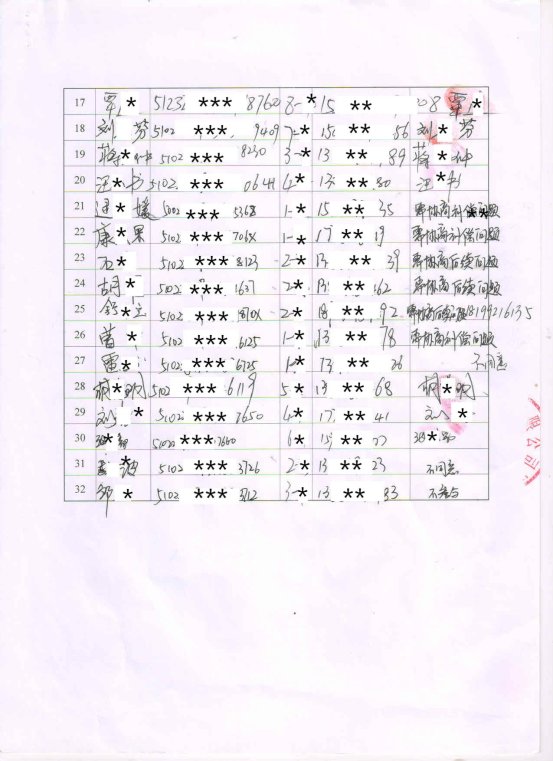 17 覃* 5123 *** 8760 8-* 15 ** 08 覃*
18 刘*芬 5102 *** 9409 7-* 15 ** 56 刘*芬
19 蒋* 5102 *** 8230 3-* 13 ** 89 蒋*
20 汪* 5102 *** 0641 6-* 13 ** 80 汪*
21 *媛 5002 *** 5368 1-* 15 ** 35 需协商补偿问题
22 康*果 5102 *** 706X 1-* 17 ** 19 需协商补偿问题
23 石* 5102 *** 8123 2-* 13 ** 39 需协商后续问题
24 胡* 5002 *** 1637 2-* 13 ** 62 需协商后续问题
25 舒* 5102 *** 2-* 18 ** 92 需协商后续问题 18199216135
26 * 5102 *** 6125 1-* 13 ** 78 需协商补偿问题
27 雷* 5102 *** 6725 1-* 13 ** 26 不同意
28 胡*明 5102 *** 6119 5-* 13 ** 68 胡*明
29 刘* 5102 *** 7650 4-* 17 ** 41 刘*
30 * 5102 *** 7660 6* 15 ** 77 *
31 *波 5102 *** 3726 2-* 13 ** 23 不同意
32 邹* 5102 *** 3712 3-* 13 ** 83 不参与
限公司